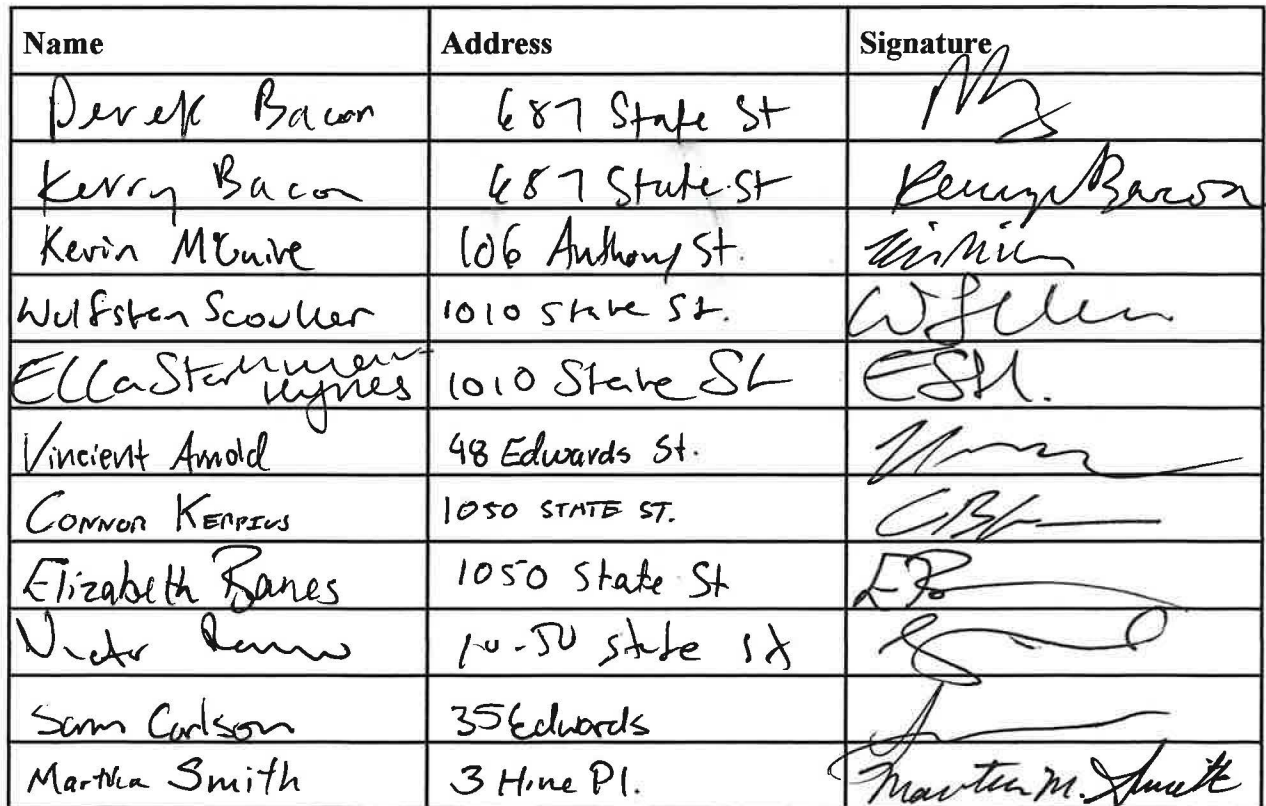 Name Address Signature
Derek Bacon 687 State St
Kerry Bacon 687 State St Kerry Bacon
Kevin McGuire 106 Anthony St.
Wulfstan Scouller 1010 State St.
Ella Starkman-
Hynes 1010 State St ESH.
Vincient Arnold 48 Edwards St.
Connor Kerpius 1050 STATE ST.
Elizabeth Banes 1050 State St
Victor 10-50 State St
Sam Carlson 35 Edwards
Martha Smith 3 Hine Pl. Martha M. Smith